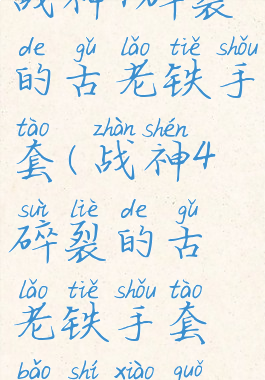 战神4碎裂
de gǔ lǎo tiě shǒu
的古老铁手
tào zhàn shén
套(战神4
suì liè de gǔ
碎裂的古
lǎo tiě shǒu tào
老铁手套
bǎo shí xiào guǒ